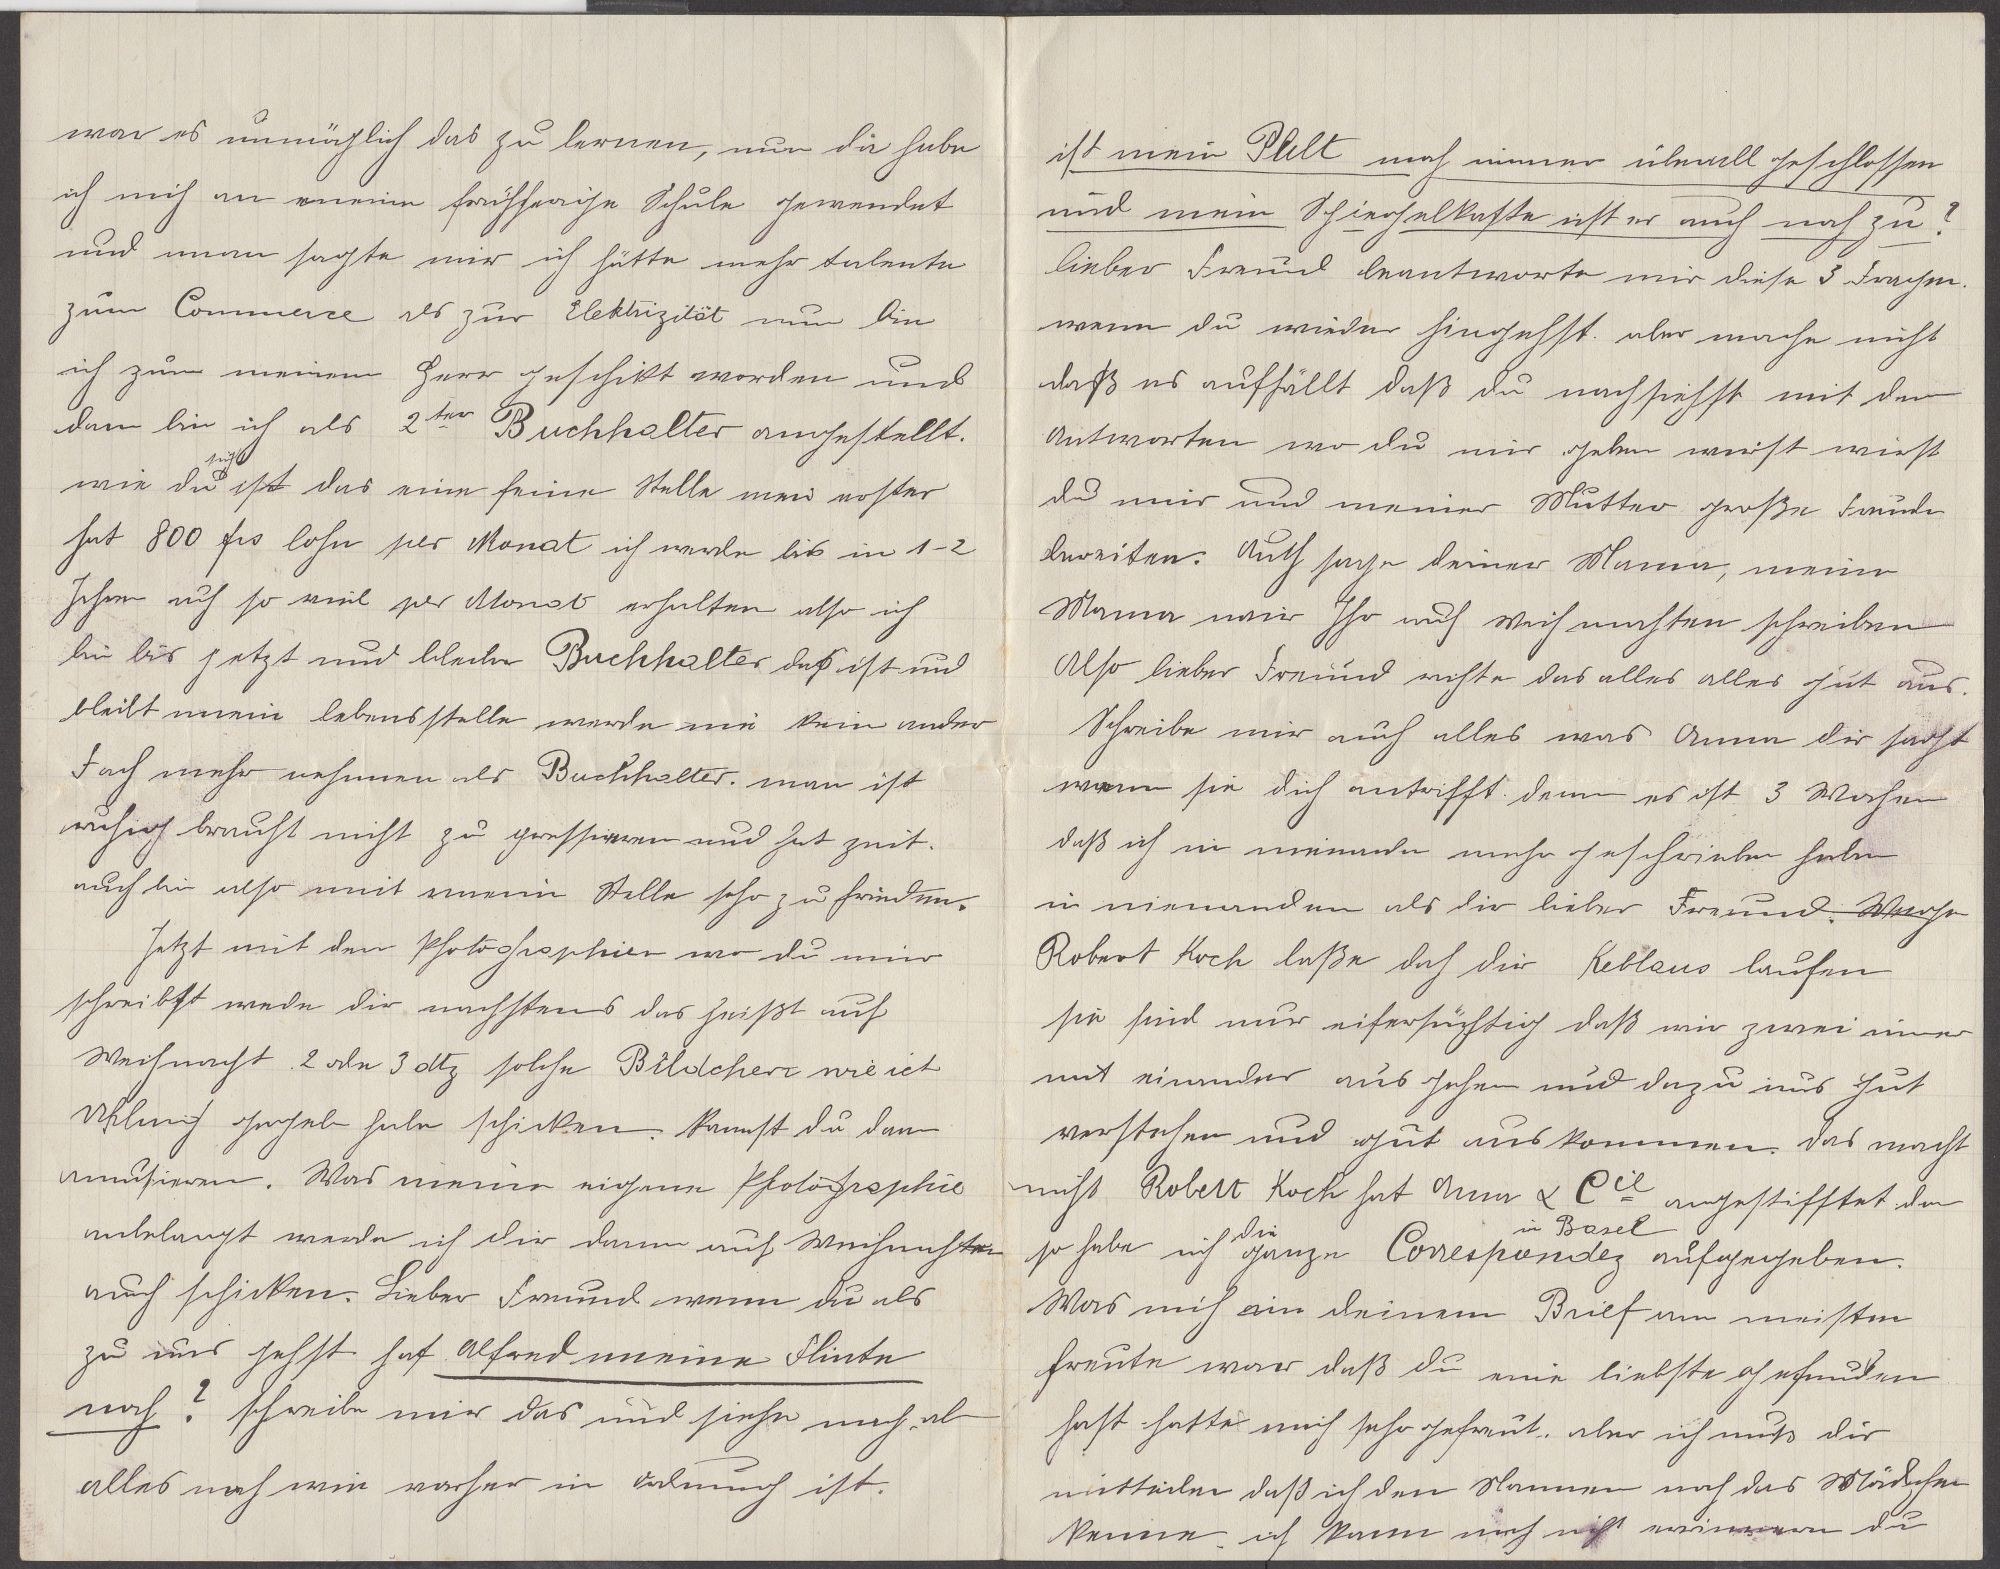 war es unmöglich das zu lernen, nun da habe
ich mich an meine frühherige Schule gewendet
und man sagte mir ich hätte mehr talente
zum Commerce als zur Elektrizität nun bin
ich zum meinem Herr geschikt worden und
dan bin ich als 2ter Buchhalter angestellt.
wie du sieh ist das eine feine Stelle mein erster
hat 800 frs lohn per Monat ich werde bis in 1-2
Jahren auch so viel per Monat erhalten also ich
bin bis jetzt und bleibe Buchhalter daß ist und
bleibt mein lebensstelle werde nie kein ander
Fach mehr nehmen als Buchhalter. man ist
ruhig braucht nicht zu pressieren und hat zeit.
auch bin also mit meine Stelle sehr zufrieden.
Jetzt mit den Photographien wo du mir
schreibst werde dir nachstens das heißt auf
Weihnacht 2 oder 3 dtz solche Bildcher wie ich
gegeb habe schicken. kannst du dann
amusieren. Was meine eigene Photographie
anbelangt werde ich dir dann auf Weihnachten
auch schicken. Lieber Freund wenn du als
zu uns gehst hat Alfred meine Flinte
noch? schreibe mir das und siehe nach ob
alles noch wie vorher in ordnung ist.
ist mein Pult noch immer überall geschlossen
und mein Spiegelkaste ist er auch noch zu?
lieber Freund beantworte mir diese 3 Fragen.
wenn du wieder hingehst. aber mache nicht
daß es auffällt daß du nachsiehst mit den
Antworten wo du mir geben wirst wirst
du mir und meiner Mutter große Freude
bereiten. Auch sage deiner Mama, meine
Mama wir Ihr auf Weihnachten schreiben
Also lieber Freund richte das alles alles gut aus.
Schreibe mir auch alles was Anna dir sagt
wann sie dich antrifft. denn es ist 3 Wochen
daß ich in niemande mehr geschrieben habe
in niemanden als dir lieber Freund.
Robert Koch laße doch die Reblaus laufen
sie sind nur eifersüchtig daß wir zwei imer
mit einander aus gehen und dazu uns gut
verstehen und gut auskommen. das macht
nicht Robert Koch hat Anna & Cie angestifftet dan
so habe ich die ganze Correspondez in Basel aufgegeben.
Was mich ain deinem Brief am meisten
freute war daß du eine liebste gefunden
hast hatte mich sehr gefreut. aber ich muß dir
mitteilen daß ich den Namen noch das Mädchen
kenne. ich kann mich nicht errinnern du